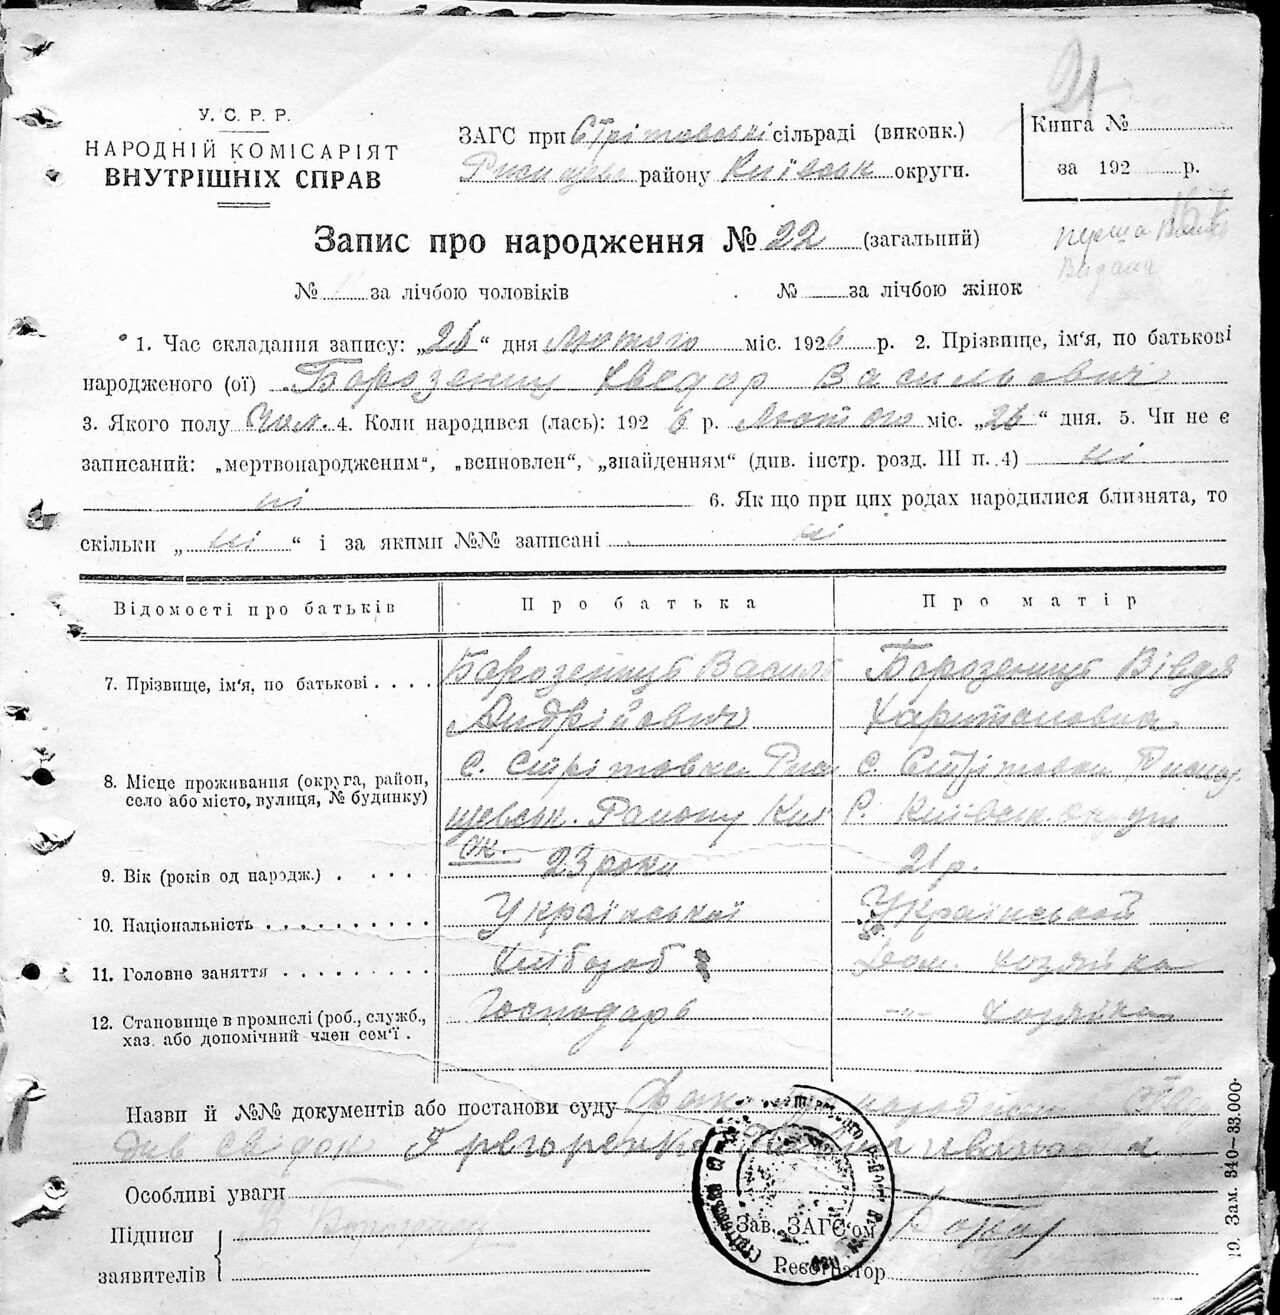 21
У. С. Р. Р.
НАРОДНІЙ КОМІСАРІЯТ
ВНУТРІШНІХ СПРАВ
ЗАГС при Стрітовські сільраді (виконк.)
району Київськ округи.
Книга №
за 192 р.
Запис про народження № 22 (загальний)
перша
Видана
№ 11 за лічбою чоловіків № — за лічбою жінок
1. Час складання запису: „26“ дня Лютого міс. 1926 р. 2. Прізвище, ім'я, по батькові
народженого (ої) Борозенец Хведор Васильович
3. Якого полу Чол. 4. Коли народився (лась): 192 6 р. Лютого міс. „26“ дня. 5. Чи не є
записаний: „мертвонародженим“, „всиновлен“, „знайденням“ (див. інстр. розд. III п. 4) ні
ні 6. Як що при цих родах народилися близнята, то
скільки „ ні “ і за якими №№ записані ні
Відомості про батьків Про батька Про матір
7. Прізвище, ім'я, по батькові . . . . Борозенець Василь Борозенець Вівдя
Андрійович Харитановна.
8. Місце проживання (округа, район, С. Стрітовка С. Стрітовка
село або місто, вулиця, № будинку) Району Р. Київськ округи
Ок.
9. Вік (років од нардж.) . . . . . 23 роки 21 р.
10. Національність . . . . . . . . . Української Української
11. Головне заняття . . . . . . . . . Хлібороб Дом. хозяйка
12. Становище в промислі (роб., службв., Господарь -"- хозяйка
хаз. або допомічний член сем'ї .
Назви й №№ документів або постанови суду
свідок
Особливі уваги
Підписи
заявителів
Зав. ЗАГС'ом
Реєстратор
19. Зам. 340—33.000